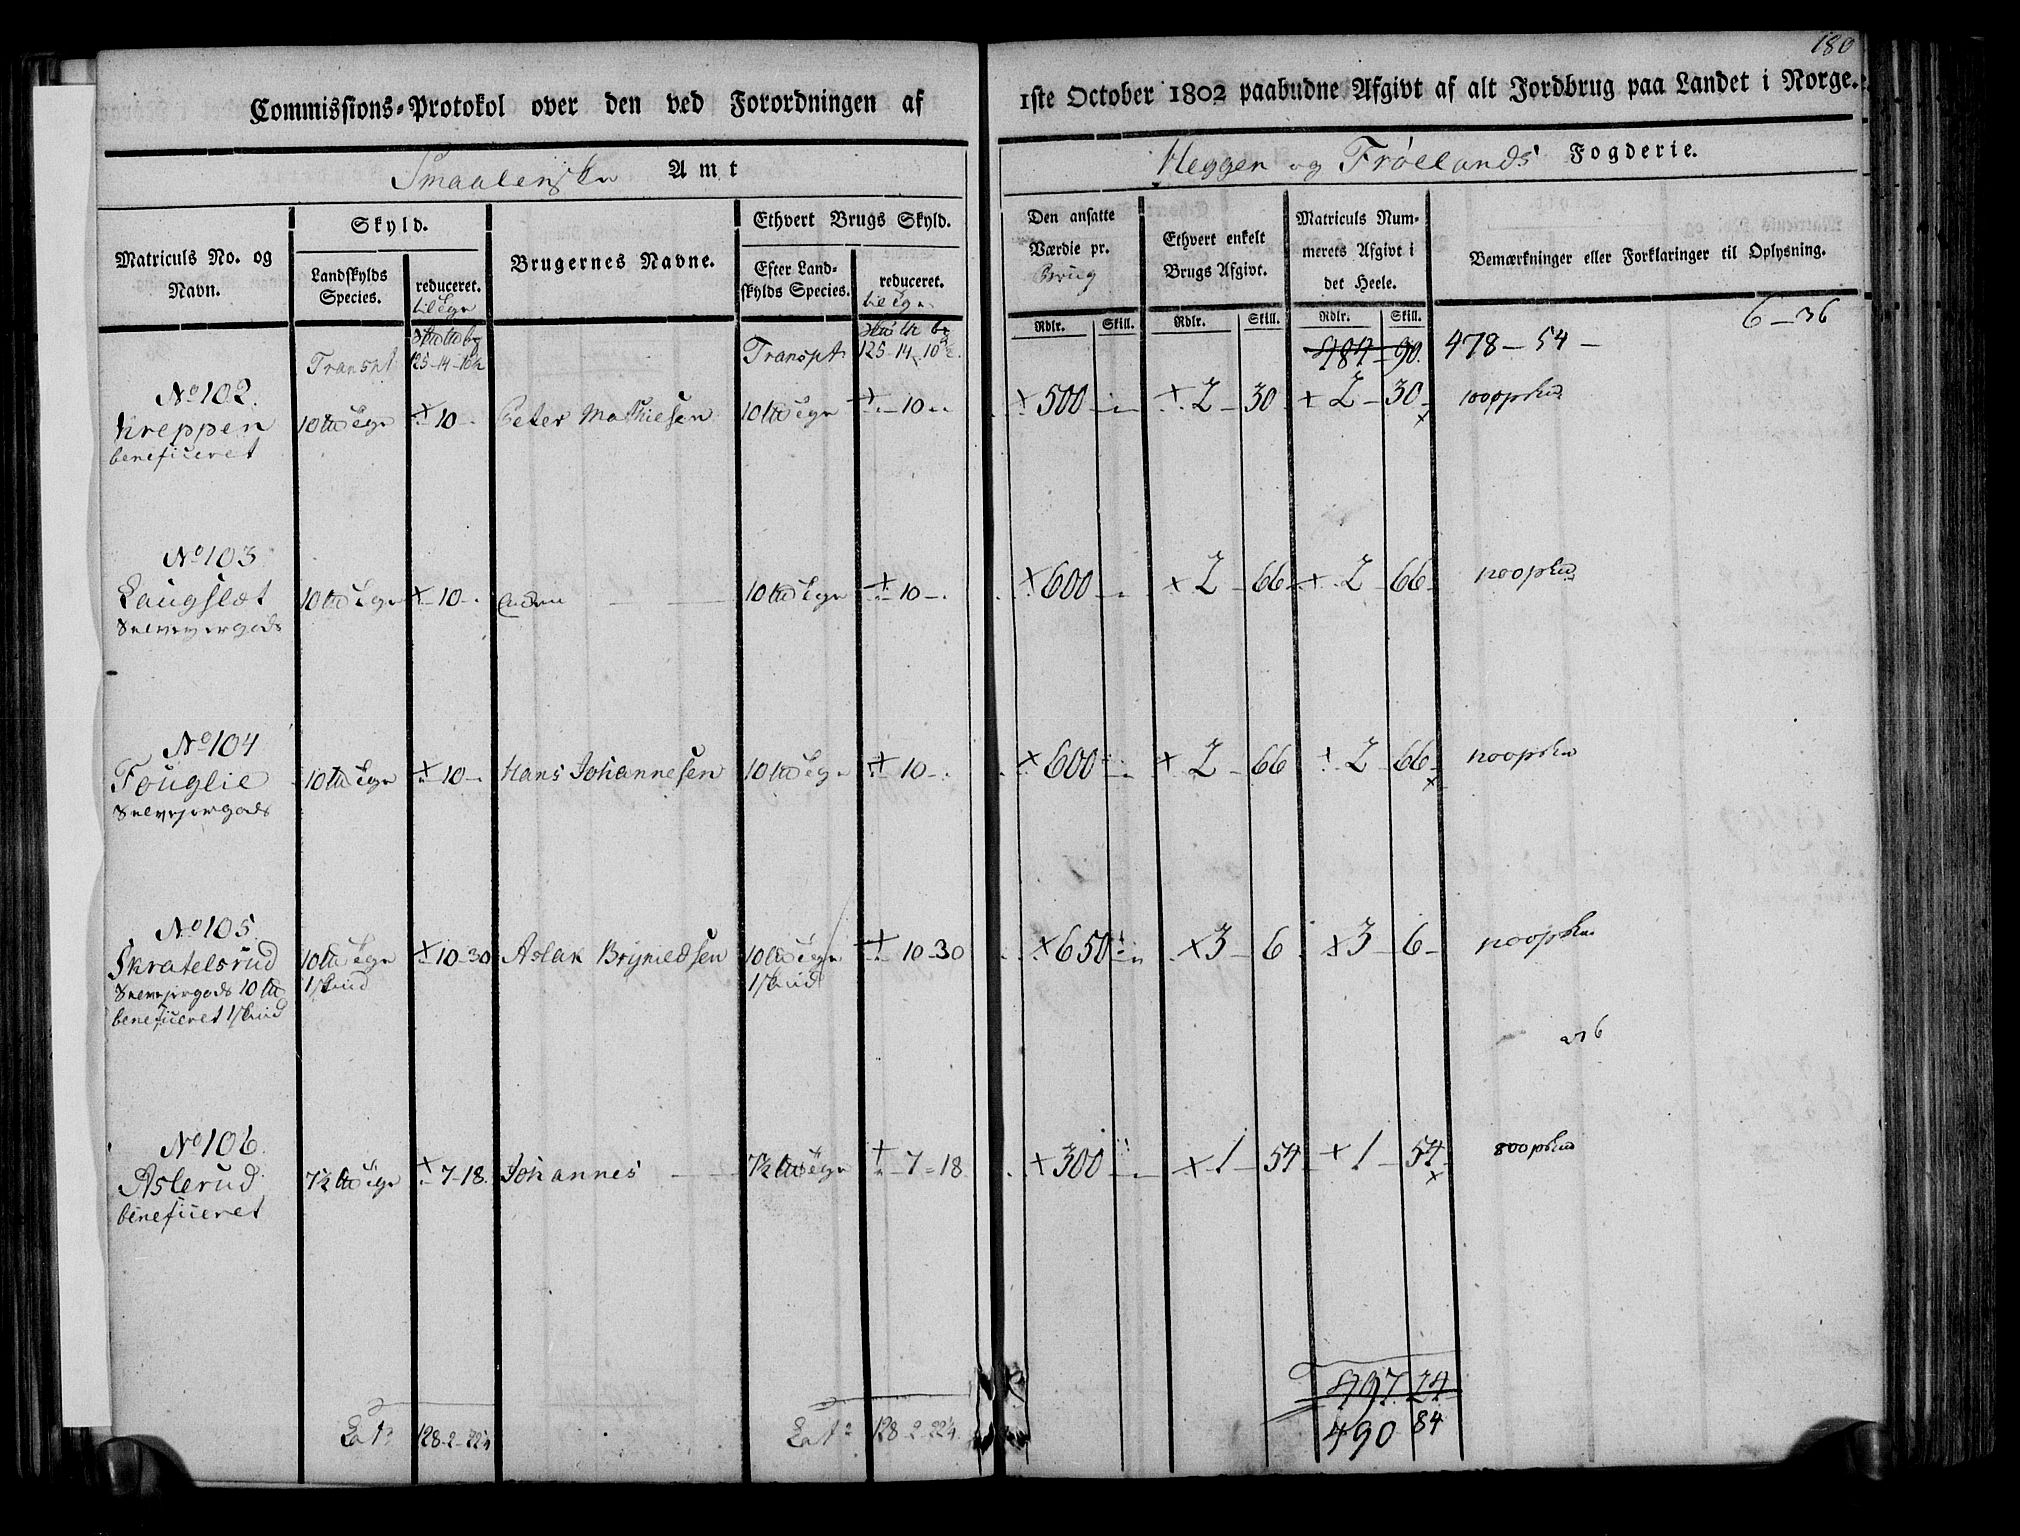 180
Commissions-Protokol over den ved Forordningen af 1ste October 1802 paabudne Afgivt af alt Jordbrug paa Landet i Norge.
Smaalenske Amt
Heggen og Frøelands Fogderie.
Matriculs No. og Navn.
Skyld.
Landskylds Species.
reduceret.
til Tgn
Brugernes Navne.
Ethvert Brugs Skyld.
Efter Landskylds Species.
reduceret.
til Tgn
Den ansatte Værdie pr. Brug
Ethvert enkelt Brugs Afgivt.
Matriculs Nummerets Afgivt i det Heele.
Bemærkninger eller Forklaringer til Oplysning.
Rdlr. Skill. Rdlr. Skill. Rdlr. Skill.
6-36
Transpt 125-14-10½ Transpt 125-14-10½ 484-90. 478-54-
No 102.
Kreppen 10 Tgn + 10 Peter Mathiesen 10 Tgn + 10 + 500 + 2-30 + 2-30
beneficeret
No 103
Laugslet 10 Tgn + 10 10 Tgn + 10 + 600 + 2-66 + 2-66
No 104
Fouglie 10 Tgn + 10 Hans Johannesen 10 Tgn + 10 + 600 + 2-66 + 2-66
No 105
Skratelsrud 10 Tgn + 10-30 Aslak Brynildsen 10 Tgn + 10-30 + 650 + 3-6 + 3-6
10 1 Hud 1 Hud
beneficeret 1 Hud
No 106.
Aslerud 7½ Tgn + 7-18 Johannes 7½ Tgn + 7-18 + 300 + 1-54 + 1-54
beneficeret
497. 24
Lat 128-2-22½ Lat 128-2-22½ 490 84